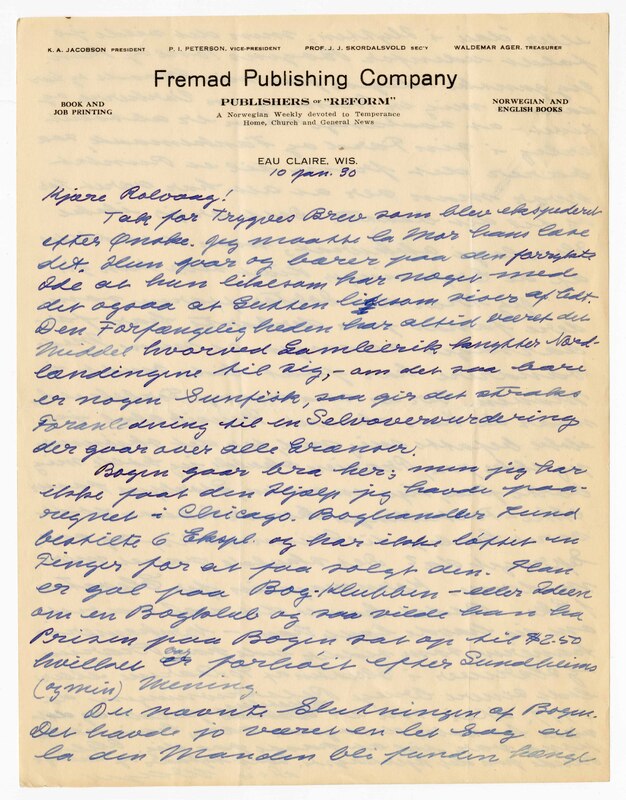 K. A. JACOBSON PRESIDENT P. I. PETERSON, VICE-PRESIDENT PROF. J. J. SKORDALSVOLD SEC'Y WALDEMAR AGER, TREASURER
Fremad Publishing Company
BOOK AND
JOB PRINTING
PUBLISHERS OF "REFORM"
A Norwegian Weekly devoted to Temperance
Home, Church and General News
NORWEGIAN AND
ENGLISH BOOKS
EAU CLAIRE, WIS.
10 Jan. 30
Kjære Rolvaag!
Tak for Trygves Brev som blev ekspederet
efter Ønske. Jeg maatte la Mor hans læse
det. Hun gaar og bærer paa den forrykte
Ide at hun likesom har noget med
det ogsaa at Gutten liksom river af lidt.
Den Forfængeligheden har altid været det
Middel hvorved Gamleerik knytter Nord-
lændingene til sig, - om det saa bare
er nogen Sunfisk, saa gir det straks
Foranledning til en Selvovervurdering
der gaar over alle Grænser.
Bogen gaar bra her; men jeg har
ikke faat den Hjælp jeg havde paa-
regnet i Chicago. Boghandler Lund
bestilte 6 Ekspl. og har ikke løftet en
Finger for at faa solgt den. Han
er gal paa Bog-Klubben - eller Ideen
om en Bogklub og saa vilde han ha
Prisen paa Bogen sat op til $2.50
hvilket var forhøit efter Sundheims
(og min) Mening.
Du nævnte Slutningen af Bogen.
Det havde jo været en let Sag at
la den Manden bli funden hængt